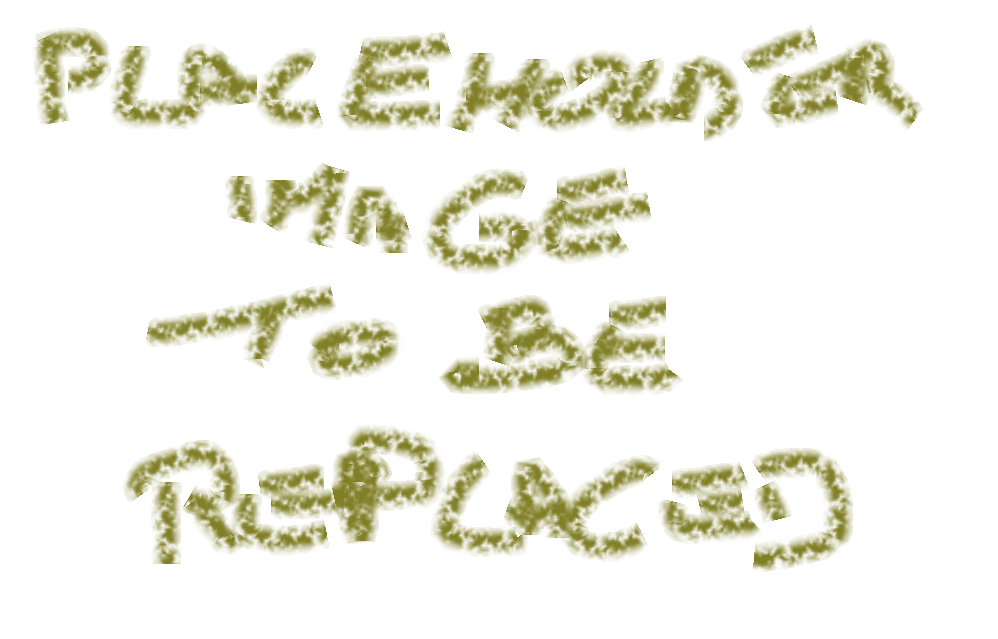 PLACEHOLDER
IMAGE
TO BE
REPLACED